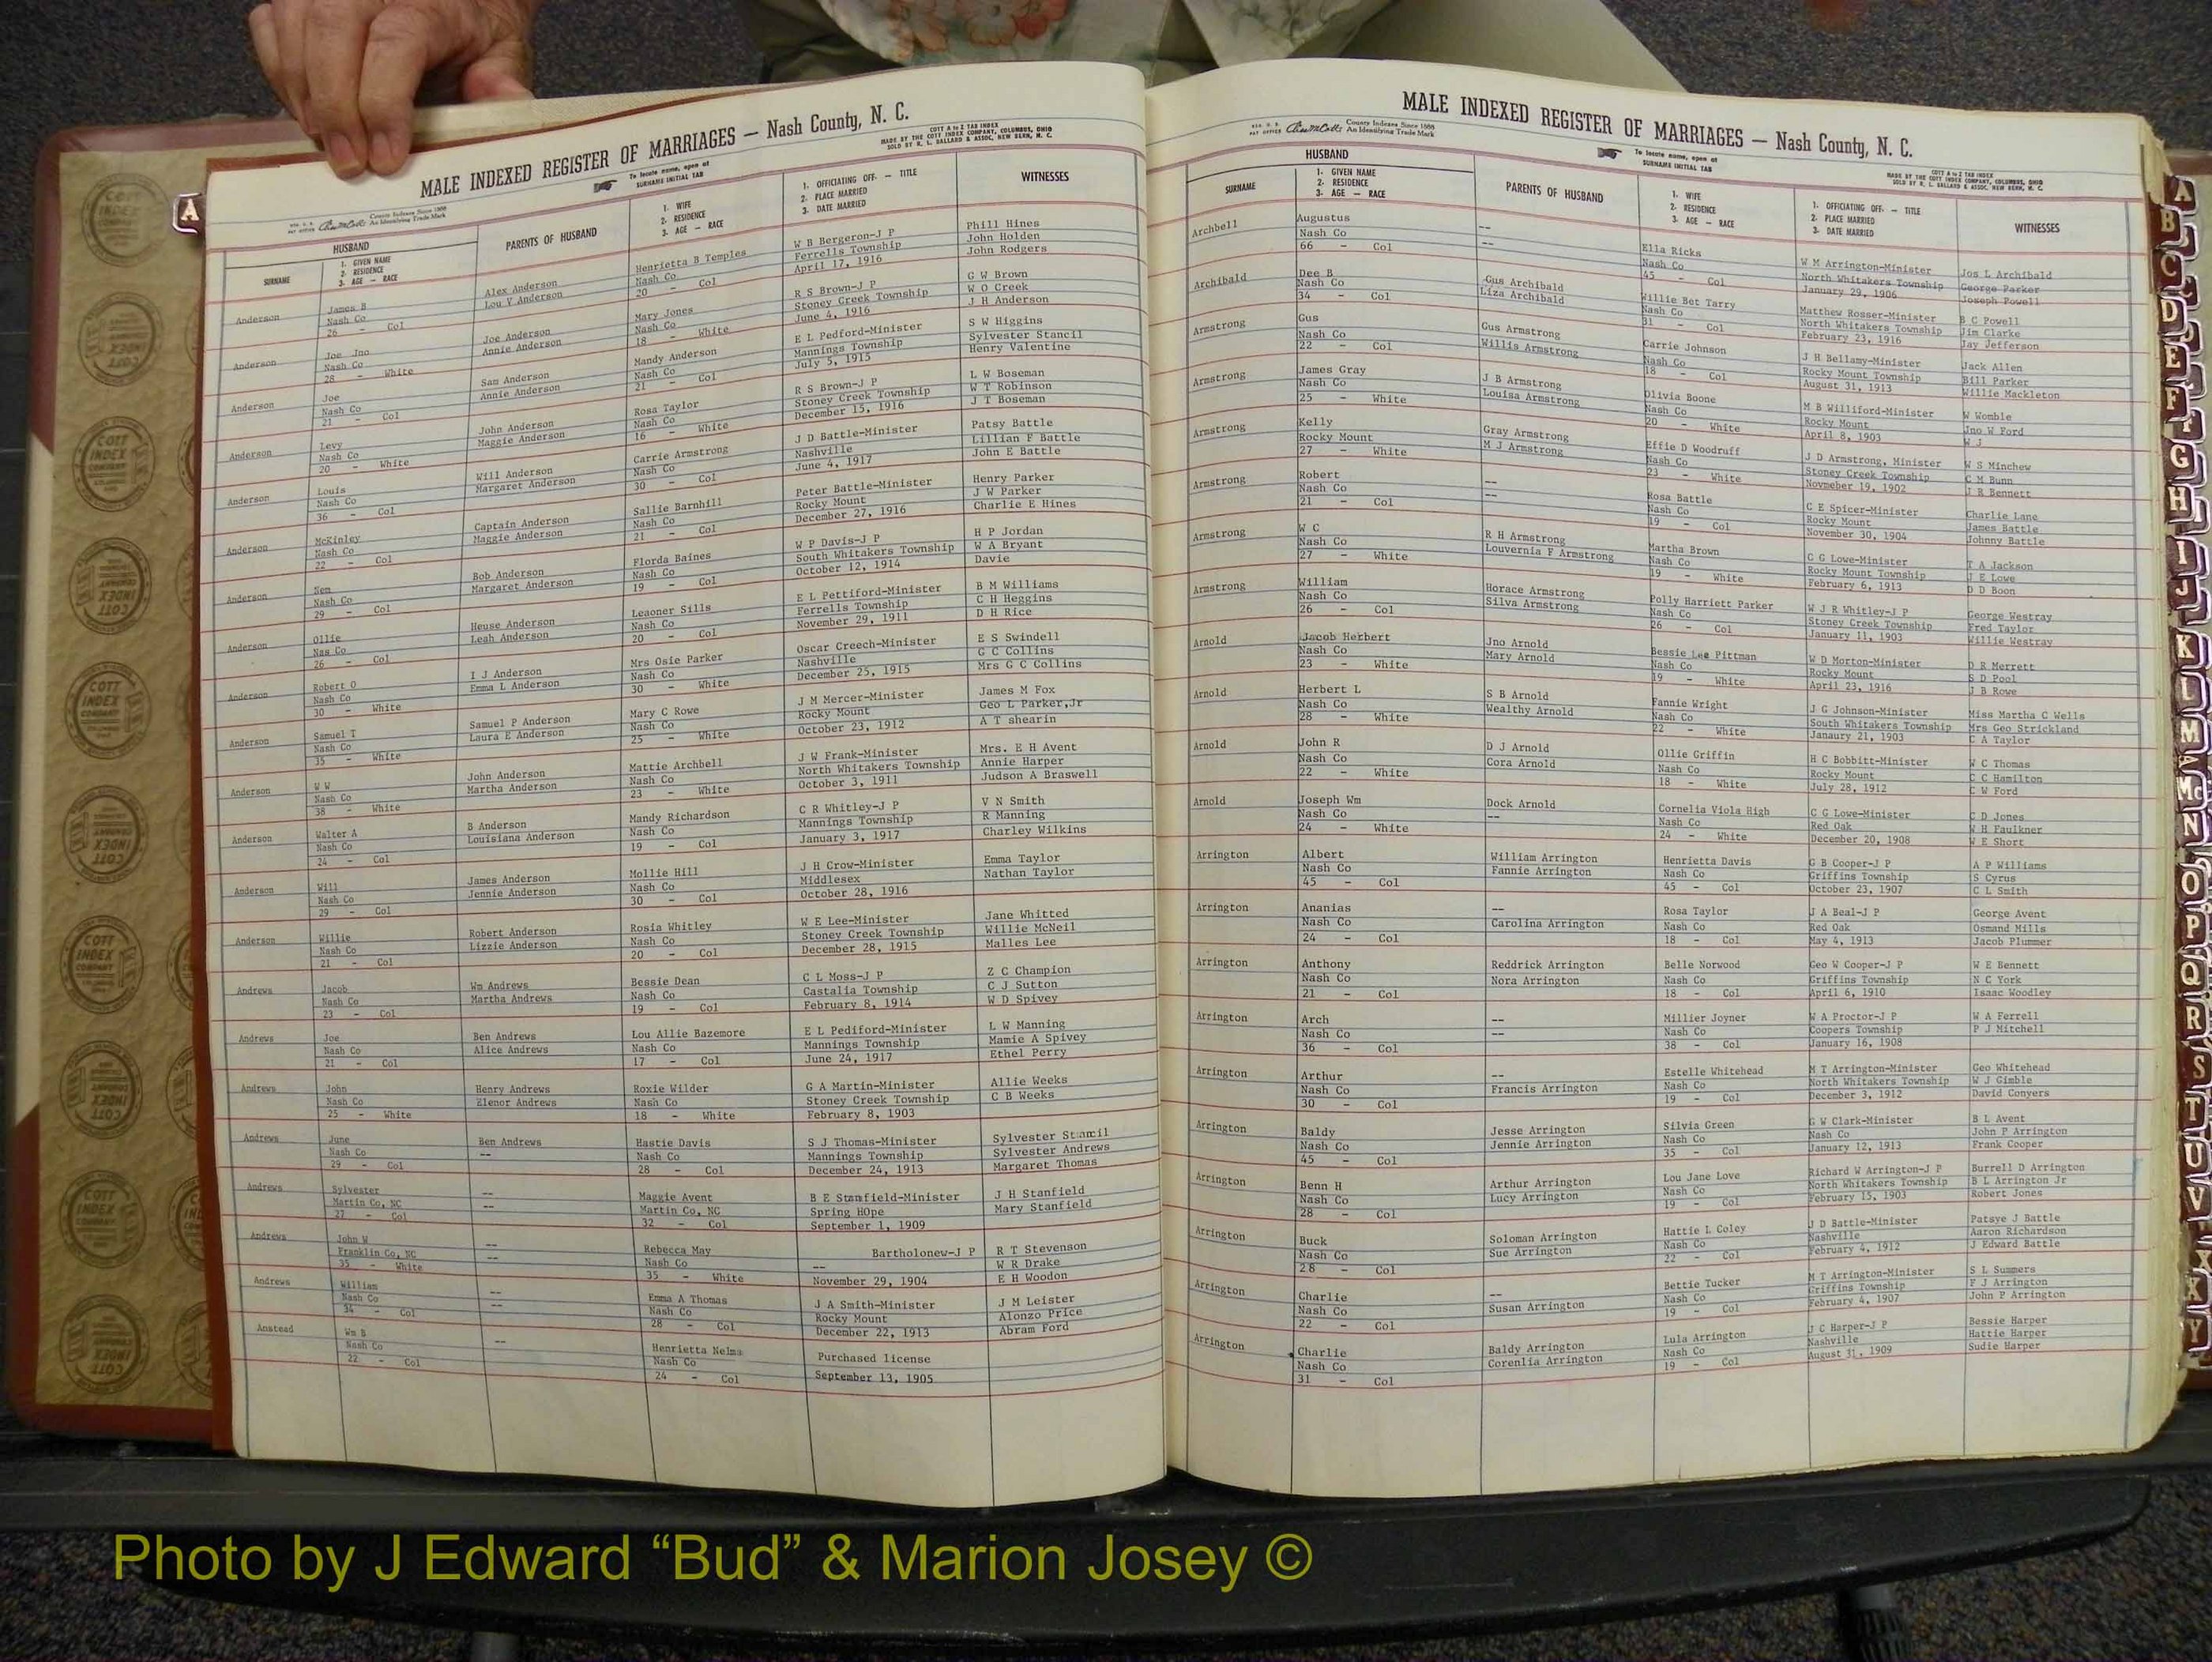 MALE INDEXED REGISTER OF MARRIAGES — Nash County, N. C.
County Indexes Since 1888
An Identifying Trade Mark
To locate name, open at
SURNAME INITIAL TAB
COTT A to Z TAB INDEX
MADE BY THE COTT INDEX COMPANY, COLUMBUS, OHIO
SOLD BY R. L. BALLARD & ASSOC. NEW BERN, N. C.
HUSBAND
SURNAME
1. GIVEN NAME
2. RESIDENCE
3. AGE — RACE
PARENTS OF HUSBAND
1. WIFE
2. RESIDENCE
3. AGE — RACE
1. OFFICIATING OFF. — TITLE
2. PLACE MARRIED
3. DATE MARRIED
WITNESSES
Anderson James B Alex Anderson Henrietta B Temples W B Bergeron-J P Phill Hines
Nash Co Lou V Anderson Nash Co Ferrells Township John Holden
26 - Col 20 - Col April 17, 1916 John Rodgers
Anderson Joe Jno Joe Anderson Mary Jones R S Brown-J P G W Brown
Nash Co Annie Anderson Nash Co Stoney Creek Township W O Creek
28 - White 18 - White June 4, 1916 J H Anderson
Anderson Joe Sam Anderson Mandy Anderson E L Pedford-Minister S W Higgins
Nash Co Annie Anderson Nash Co Mannings Township Sylvester Stancil
21 - Col 21 - Col July 5, 1915 Henry Valentine
Anderson Levy John Anderson Rosa Taylor R S Brown-J P L W Boseman
Nash Co Maggie Anderson Nash Co Stoney Creek Township W T Robinson
20 - White 16 - White December 15, 1916 J T Boseman
Anderson Louis Will Anderson Carrie Armstrong J D Battle-Minister Patsy Battle
Nash Co Margaret Anderson Nash Co Nashville Lillian F Battle
36 - Col 30 - Col June 4, 1917 John E Battle
Anderson McKinley Captain Anderson Sallie Barnhill Peter Battle-Minister Henry Parker
Nash Co Maggie Anderson Nash Co Rocky Mount J W Parker
22 - Col 21 - Col December 27, 1916 Charlie E Hines
Anderson Nem Bob Anderson Florda Baines W P Davis-J P H P Jordan
Nash Co Margaret Anderson Nash Co South Whitakers Township W A Bryant
29 - Col 19 - Col October 12, 1914 Davie
Anderson Ollie Heuse Anderson Leaoner Sills E L Pettiford-Minister B M Williams
Nas Co Leah Anderson Nash Co Ferrells Township C H Heggins
26 - Col 20 - Col November 29, 1911 D H Rice
Anderson Robert O I J Anderson Mrs Osie Parker Oscar Creech-Minister E S Swindell
Nash Co Emma L Anderson Nash Co Nashville G C Collins
30 - White 30 - White December 25, 1915 Mrs G C Collins
Anderson Samuel T Samuel P Anderson Mary C Rowe J M Mercer-Minister James M Fox
Nash Co Laura E Anderson Nash Co Rocky Mount Geo L Parker,Jr
35 - White 25 - White October 23, 1912 A T shearin
Anderson W W John Anderson Mattie Archbell J W Frank-Minister Mrs. E H Avent
Nash Co Martha Anderson Nash Co North Whitakers Township Annie Harper
38 - White 23 - White October 3, 1911 Judson A Braswell
Anderson Walter A B Anderson Mandy Richardson C R Whitley-J P V N Smith
Nash Co Louisiana Anderson Nash Co Mannings Township R Manning
24 - Col 19 - Col January 3, 1917 Charley Wilkins
Anderson Will James Anderson Mollie Hill J H Crow-Minister Emma Taylor
Nash Co Jennie Anderson Nash Co Middlesex Nathan Taylor
29 - Col 30 - Col October 28, 1916
Anderson Willie Robert Anderson Rosia Whitley W E Lee-Minister Jane Whitted
Nash Co Lizzie Anderson Nash Co Stoney Creek Township Willie McNeil
21 - Col 20 - Col December 28, 1915 Malles Lee
Andrews Jacob Wm Andrews Bessie Dean C L Moss-J P Z C Champion
Nash Co Martha Andrews Nash Co Castalia Township C J Sutton
23 - Col 19 - Col February 8, 1914 W D Spivey
Andrews Joe Ben Andrews Lou Allie Bazemore E L Pediford-Minister L W Manning
Nash Co Alice Andrews Nash Co Mannings Township Mamie A Spivey
21 - Col 17 - Col June 24, 1917 Ethel Perry
Andrews John Henry Andrews Roxie Wilder G A Martin-Minister Allie Weeks
Nash Co Elenor Andrews Nash Co Stoney Creek Township C B Weeks
25 - White 18 - White February 8, 1903
Andrews June Ben Andrews Hastie Davis S J Thomas-Minister Sylvester Stancil
Nash Co -- Nash Co Mannings Township Sylvester Andrews
29 - Col 28 - Col December 24, 1913 Margaret Thomas
Andrews Sylvester -- Maggie Avent B E Stanfield-Minister J H Stanfield
Martin Co, NC -- Martin Co, NC Spring HOpe Mary Stanfield
27 - Col 32 - Col September 1, 1909
Andrews John W -- Rebecca May Bartholonew-J P R T Stevenson
Franklin Co, NC -- Nash Co -- W R Drake
35 - White 35 - White November 29, 1904 E H Woodon
Andrews William -- Emma A Thomas J A Smith-Minister J M Leister
Nash Co -- Nash Co Rocky Mount Alonzo Price
34 - Col 28 - Col December 22, 1913 Abram Ford
Anstead Wm B -- Henrietta Nelms Purchased license
Nash Co Nash Co
22 - Col 24 - Col September 13, 1905
MALE INDEXED REGISTER OF MARRIAGES — Nash County, N. C.
County Indexes Since 1888
An Identifying Trade Mark
To locate name, open at
SURNAME INITIAL TAB
COTT A to Z TAB INDEX
MADE BY THE COTT INDEX COMPANY, COLUMBUS, OHIO
SOLD BY R. L. BALLARD & ASSOC. NEW BERN, N. C.
HUSBAND
SURNAME
1. GIVEN NAME
2. RESIDENCE
3. AGE — RACE
PARENTS OF HUSBAND
1. WIFE
2. RESIDENCE
3. AGE — RACE
1. OFFICIATING OFF. — TITLE
2. PLACE MARRIED
3. DATE MARRIED
WITNESSES
Archbell Augustus -- Ella Ricks W M Arrington-Minister Jos L Archibald
Nash Co -- Nash Co North Whitakers Township George Parker
66 - Col 45 - Col January 29, 1906 Joseph Powell
Archibald Dee B Gus Archibald Willie Bet Tarry Matthew Rosser-Minister B C Powell
Nash Co Liza Archibald Nash Co North Whitakers Township Jim Clarke
34 - Col 31 - Col February 23, 1916 Jay Jefferson
Armstrong Gus Gus Armstrong Carrie Johnson J H Bellamy-Minister Jack Allen
Nash Co Willis Armstrong Nash Co Rocky Mount Township Bill Parker
22 - Col 18 - Col August 31, 1913 Willie Mackleton
Armstrong James Gray J B Armstrong Olivia Boone M B Williford-Minister W Womble
Nash Co Louisa Armstrong Nash Co Rocky Mount Jno W Ford
25 - White 20 - White April 8, 1903 W J
Armstrong Kelly Gray Armstrong Effie D Woodruff J D Armstrong, Minister W S Minchew
Rocky Mount M J Armstrong Nash Co Stoney Creek Township C M Bunn
27 - White 23 - White Novmeber 19, 1902 J R Bennett
Armstrong Robert -- Rosa Battle C E Spicer-Minister Charlie Lane
Nash Co -- Nash Co Rocky Mount James Battle
21 - Col 19 - Col November 30, 1904 Johnny Battle
Armstrong W C R H Armstrong Martha Brown C G Lowe-Minister T A Jackson
Nash Co Louvernia F Armstrong Nash Co Rocky Mount Township J E Lowe
27 - White 19 - White February 6, 1913 D D Boon
Armstrong William Horace Armstrong Polly Harriett Parker W J R Whitley-J P George Westray
Nash Co Silva Armstrong Nash Co Stoney Creek Township Fred Taylor
26 - Col 26 - Col January 11, 1903 Willie Westray
Arnold Jacob Herbert Jno Arnold Bessie Lee Pittman W D Morton-Minister D R Merrett
Nash Co Mary Arnold Nash Co Rocky Mount S D Pool
23 - White 19 - White April 23, 1916 J B Rowe
Arnold Herbert L S B Arnold Fannie Wright J G Johnson-Minister Miss Martha C Wells
Nash Co Wealthy Arnold Nash Co South Whitakers Township Mrs Geo Strickland
28 - White 22 - White Janaury 21, 1903 C A Taylor
Arnold John R D J Arnold Ollie Griffin H C Bobbitt-Minister W C Thomas
Nash Co Cora Arnold Nash Co Rocky Mount C C Hamilton
22 - White 18 - White July 28, 1912 C W Ford
Arnold Joseph Wm Dock Arnold Cornelia Viola High C G Lowe-Minister C D Jones
Nash Co -- Nash Co Red Oak W H Faulkner
24 - White 24 - White December 20, 1908 W E Short
Arrington Albert William Arrington Henrietta Davis G B Cooper-J P A P Williams
Nash Co Fannie Arrington Nash Co Griffins Township S Cyrus
45 - Col 45 - Col October 23, 1907 C L Smith
Arrington Ananias -- Rosa Taylor J A Beal-J P George Avent
Nash Co Carolina Arrington Nash Co Red Oak Osmand Mills
24 - Col 18 - Col May 4, 1913 Jacob Plummer
Arrington Anthony Reddrick Arrington Belle Norwood Geo W Cooper-J P W E Bennett
Nash Co Nora Arrington Nash Co Griffins Township N C York
21 - Col 18 - Col April 6, 1910 Isaac Woodley
Arrington Arch -- Millier Joyner W A Proctor-J P W A Ferrell
Nash Co -- Nash Co Coopers Township P J Mitchell
36 - Col 38 - Col January 16, 1908
Arrington Arthur -- Estelle Whitehead M T Arrington-Minister Geo Whitehead
Nash Co Francis Arrington Nash Co North Whitakers Township W J Gimble
30 - Col 19 - Col December 3, 1912 David Conyers
Arrington Baldy Jesse Arrington Silvia Green G W Clark-Minister B L Avent
Nash Co Jennie Arrington Nash Co Nash Co John P Arrington
45 - Col 35 - Col January 12, 1913 Frank Cooper
Arrington Benn H Arthur Arrington Lou Jane Love Richard W Arrington-J P Burrell D Arrington
Nash Co Lucy Arrington Nash Co North Whitakers Township B L Arrington Jr
28 - Col 19 - Col February 15, 1903 Robert Jones
Arrington Buck Soloman Arrington Hattie L Coley J D Battle-Minister Patsye J Battle
Nash Co Sue Arrington Nash Co Nashville Aaron Richardson
28 - Col 22 - Col February 4, 1912 J Edward Battle
Arrington Charlie -- Bettie Tucker M T Arrington-Minister S L Summers
Nash Co Susan Arrington Nash Co Griffins Township F J Arrington
22 - Col 19 - Col February 4, 1907 John P Arrington
Arrington Charlie Baldy Arrington Lula Arrington J C Harper-J P Bessie Harper
Nash Co Corenlia Arrington Nash Co Nashville Hattie Harper
31 - Col 19 - Col August 31, 1909 Sudie Harper
A
A
B
C
D
E
F
G
H
I
J
K
L
M
Mc
N
O
P
Q
R
S
T
U
V
Y
COTT INDEX COMPANY
Photo by J Edward “Bud” & Marion Josey ©